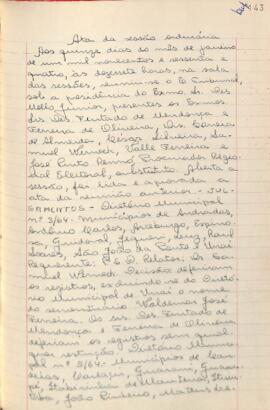 143
Ata da sessão ordinária
Aos quinze dias do mês de janeiro
de um mil novecentos e sessenta e
quatro, às dezessete horas, na sala
das sessões, reuniu-se o Tribunal,
sob a presidência do Exmo. Sr. Des.
Mello Júnior, presentes os Exmos.
Srs. Des. Furtado de Mendonça e
Ferreira de Oliveira, Drs.
de Almeida, César Silveira, Sa-
muel Werneck, Valle Ferreira e
José Pinto Renno Procurador Regio-
nal Eleitoral, substituto. Aberta a
sessão, foi lida e aprovada a
ata da reunião anterior. - JUL-
GAMENTOS - Diretório Municipal
nº 2/64 - Municípios de Andradas,
Antônio Carlos, Arceburgo, Espino-
sa, Guidoval, Jequeri, Luz, Raul
Soares, São João da Ponte e Unaí
Requerente: P.S.D. Relator: Dr. Sa-
muel Werneck. Decisão: deferiram
os registros, excluindo-se do Diretó-
rio Municipal de Unaí o nome
do serventuário Waldemar José
Ferreira. Os srs. Des. Furtado de
Mendonça e Ferreira de Oliveira
deferiram os registros sem qual-
quer restrição. Diretório Muni-
cipal nº 3/64 - Municípios de
Guarani,
Itabirinha de Mantena,
João Pinheiro, Mateus Le-